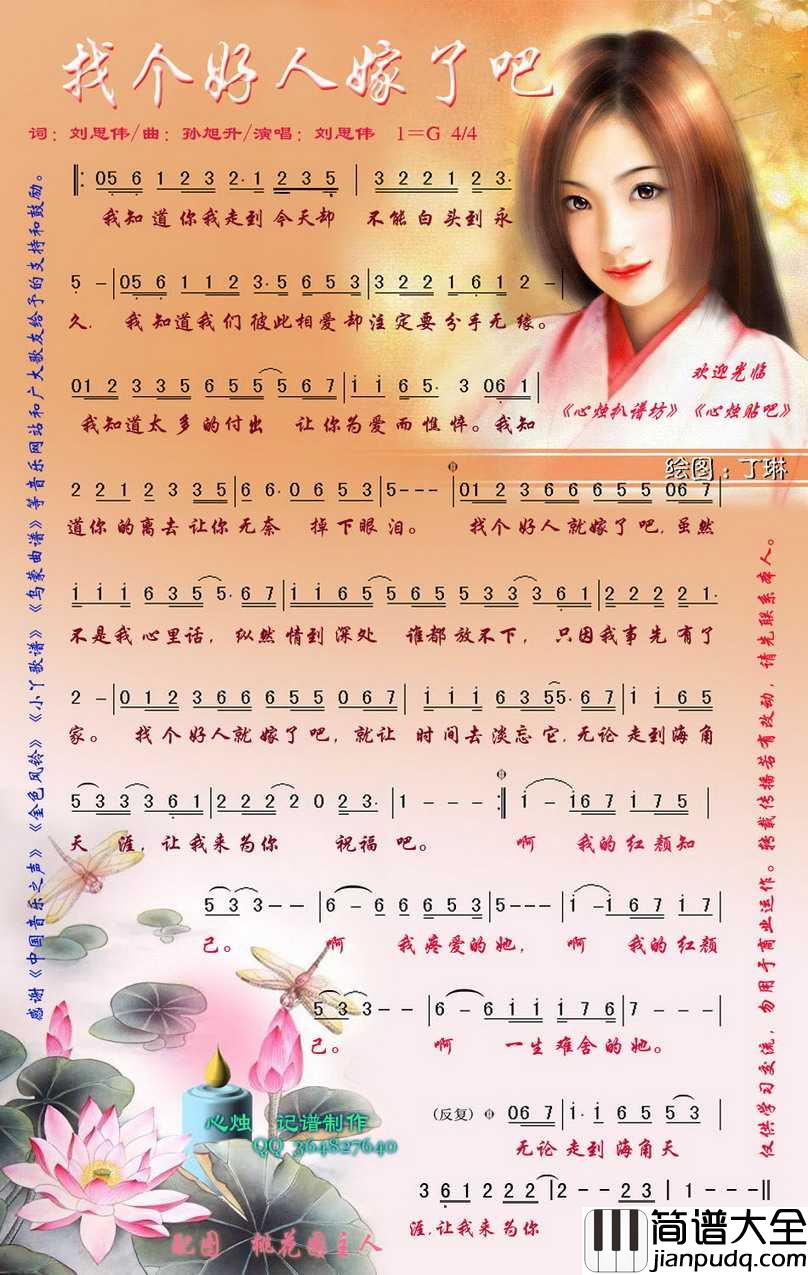 找个好人嫁了吧
词：刘思伟/曲：孙旭升/演唱：刘思伟 1=G 4/4
‖: 05 6 1 2 3 2· 1 2 3 5 | 3 2 2 1 2 3·
我知道你我走到今天却 不能白头到永
5 - | 05 6 1 1 2 3· 5 6 5 3 | 3 2 2 1 6 1 2 - |
久. 我知道我们彼此相爱却注定要分手无缘。
01 2 3 3 5 6 5 5 5 6 7 | i i 6 5· 3 06 1 |
我知道太多的付出 让你为爱而憔悴。我知
2 2 1 2 3 5 | 6 6· 0 6 5 3 | 5 - - - | 01 2 3 6 6 6 5 5 06 7 |
道你的离去让你无奈 掉下眼泪。 找个好人就嫁了吧，虽然
i i i 6 3 5 5· 6 7 | i i i 6 5 3 6 5 5 3 3 3 6 1 | 2 2 2 2 1·
不是我心里话，纵然情到深处 谁都放不下，只因我事先有了
2 - | 0 1 2 3 6 6 6 5 5 0 6 7 | i i i 6 3 5 5· 6 7 | i i 6 5
家。 找个好人就嫁了吧，就让 时间去淡忘它，无论走到海角
5 3 3 3 6 1 | 2 2 2 2 0 2 3· | 1 - - - :‖ i - i 6 7 i 7 5 |
天 涯，让我来为你 祝福 吧。 啊 我的红颜知
5 3 3 - - | 6 - 6 6 6 5 3 | 5 - - - | i - i 6 7 i 7 |
己。 啊 我疼爱的她，啊 我的红颜
5 3 3 - - | 6 - 6 i i i 7 6 | 7 - - - |
己。 啊 一生难舍的她。
(反复) 06 7 | i· i 6 5 5 3 |
无论走到海角天
3 6 1 2 2 2 | 2 - - 2 3 | 1 - - - ‖
涯，让我来为你
欢迎光临
《心烛扒谱坊》《心烛贴吧》
绘图：丁琳
感谢《中国音乐之声》《金色风铃》《小丫歌谱》《乌蒙曲谱》等音乐网站和广大歌友给予的支持和鼓励。
仅供学习交流，勿用于商业运作。转载传播若有改动，请先联系本人。
心烛 记谱制作
QQ 364827640
配图 桃花园主人
简谱大全
jianpudq.com